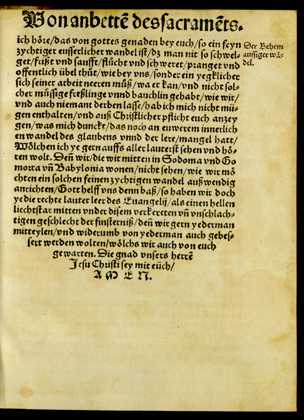 Von anbettẽ des sacramẽts.
ich höre/das von gottes genaden bey euch/so ein feyn
zychtiger eusserlicher wandel ist/dz man nit so schwel
get/frißt vnd saufft/flücht vnd schweret/pranget vnd
offentlich übel thůt/wie bey vns/sonder ein yegklicher
sich seiner arbeit neeren můß/wa er kan/vnd nicht sol-
cher müssige freßlinge vnnd bauchlin gehabt/wie wir/
vnd auch niemant derben lasse/hab ich mich nicht mü-
gen enthalten/vnd auß Christlicher pflicht euch anzey
gen/was mich dunckt/das noch an euwerem innerlich
en wandel des glaubens vnnd der lere/mangel hatt/
Wölchen ich ye gern auffs aller lauterist sehen vnd hö-
ren wolt. Deñ wir/die wir mitten in Sodoma vnd Go
morra vñ Babylonia wonen/nicht sehen/wie wir mö-
chten ein solchen feinen zychtigen wandel außwendig
anrichten/Gott helff vns denn baß/so haben wir doch
ye die rechte lauter leer des Euangelij/als einen hellen
liechtstar mitten vnder disem verkereten vñ vnschlach-
tigen geschlecht der finsterniß/den wir gern yederman
mitteylen/vnd widerumb von yederman auch gebes-
sert werden wolten/wölchs wir auch von euch
gewarten. Die gnad vnsers herrẽ
Jesu Christi sey mit eüch/
A M E N.
Der Behem
aussiger wã-
del.